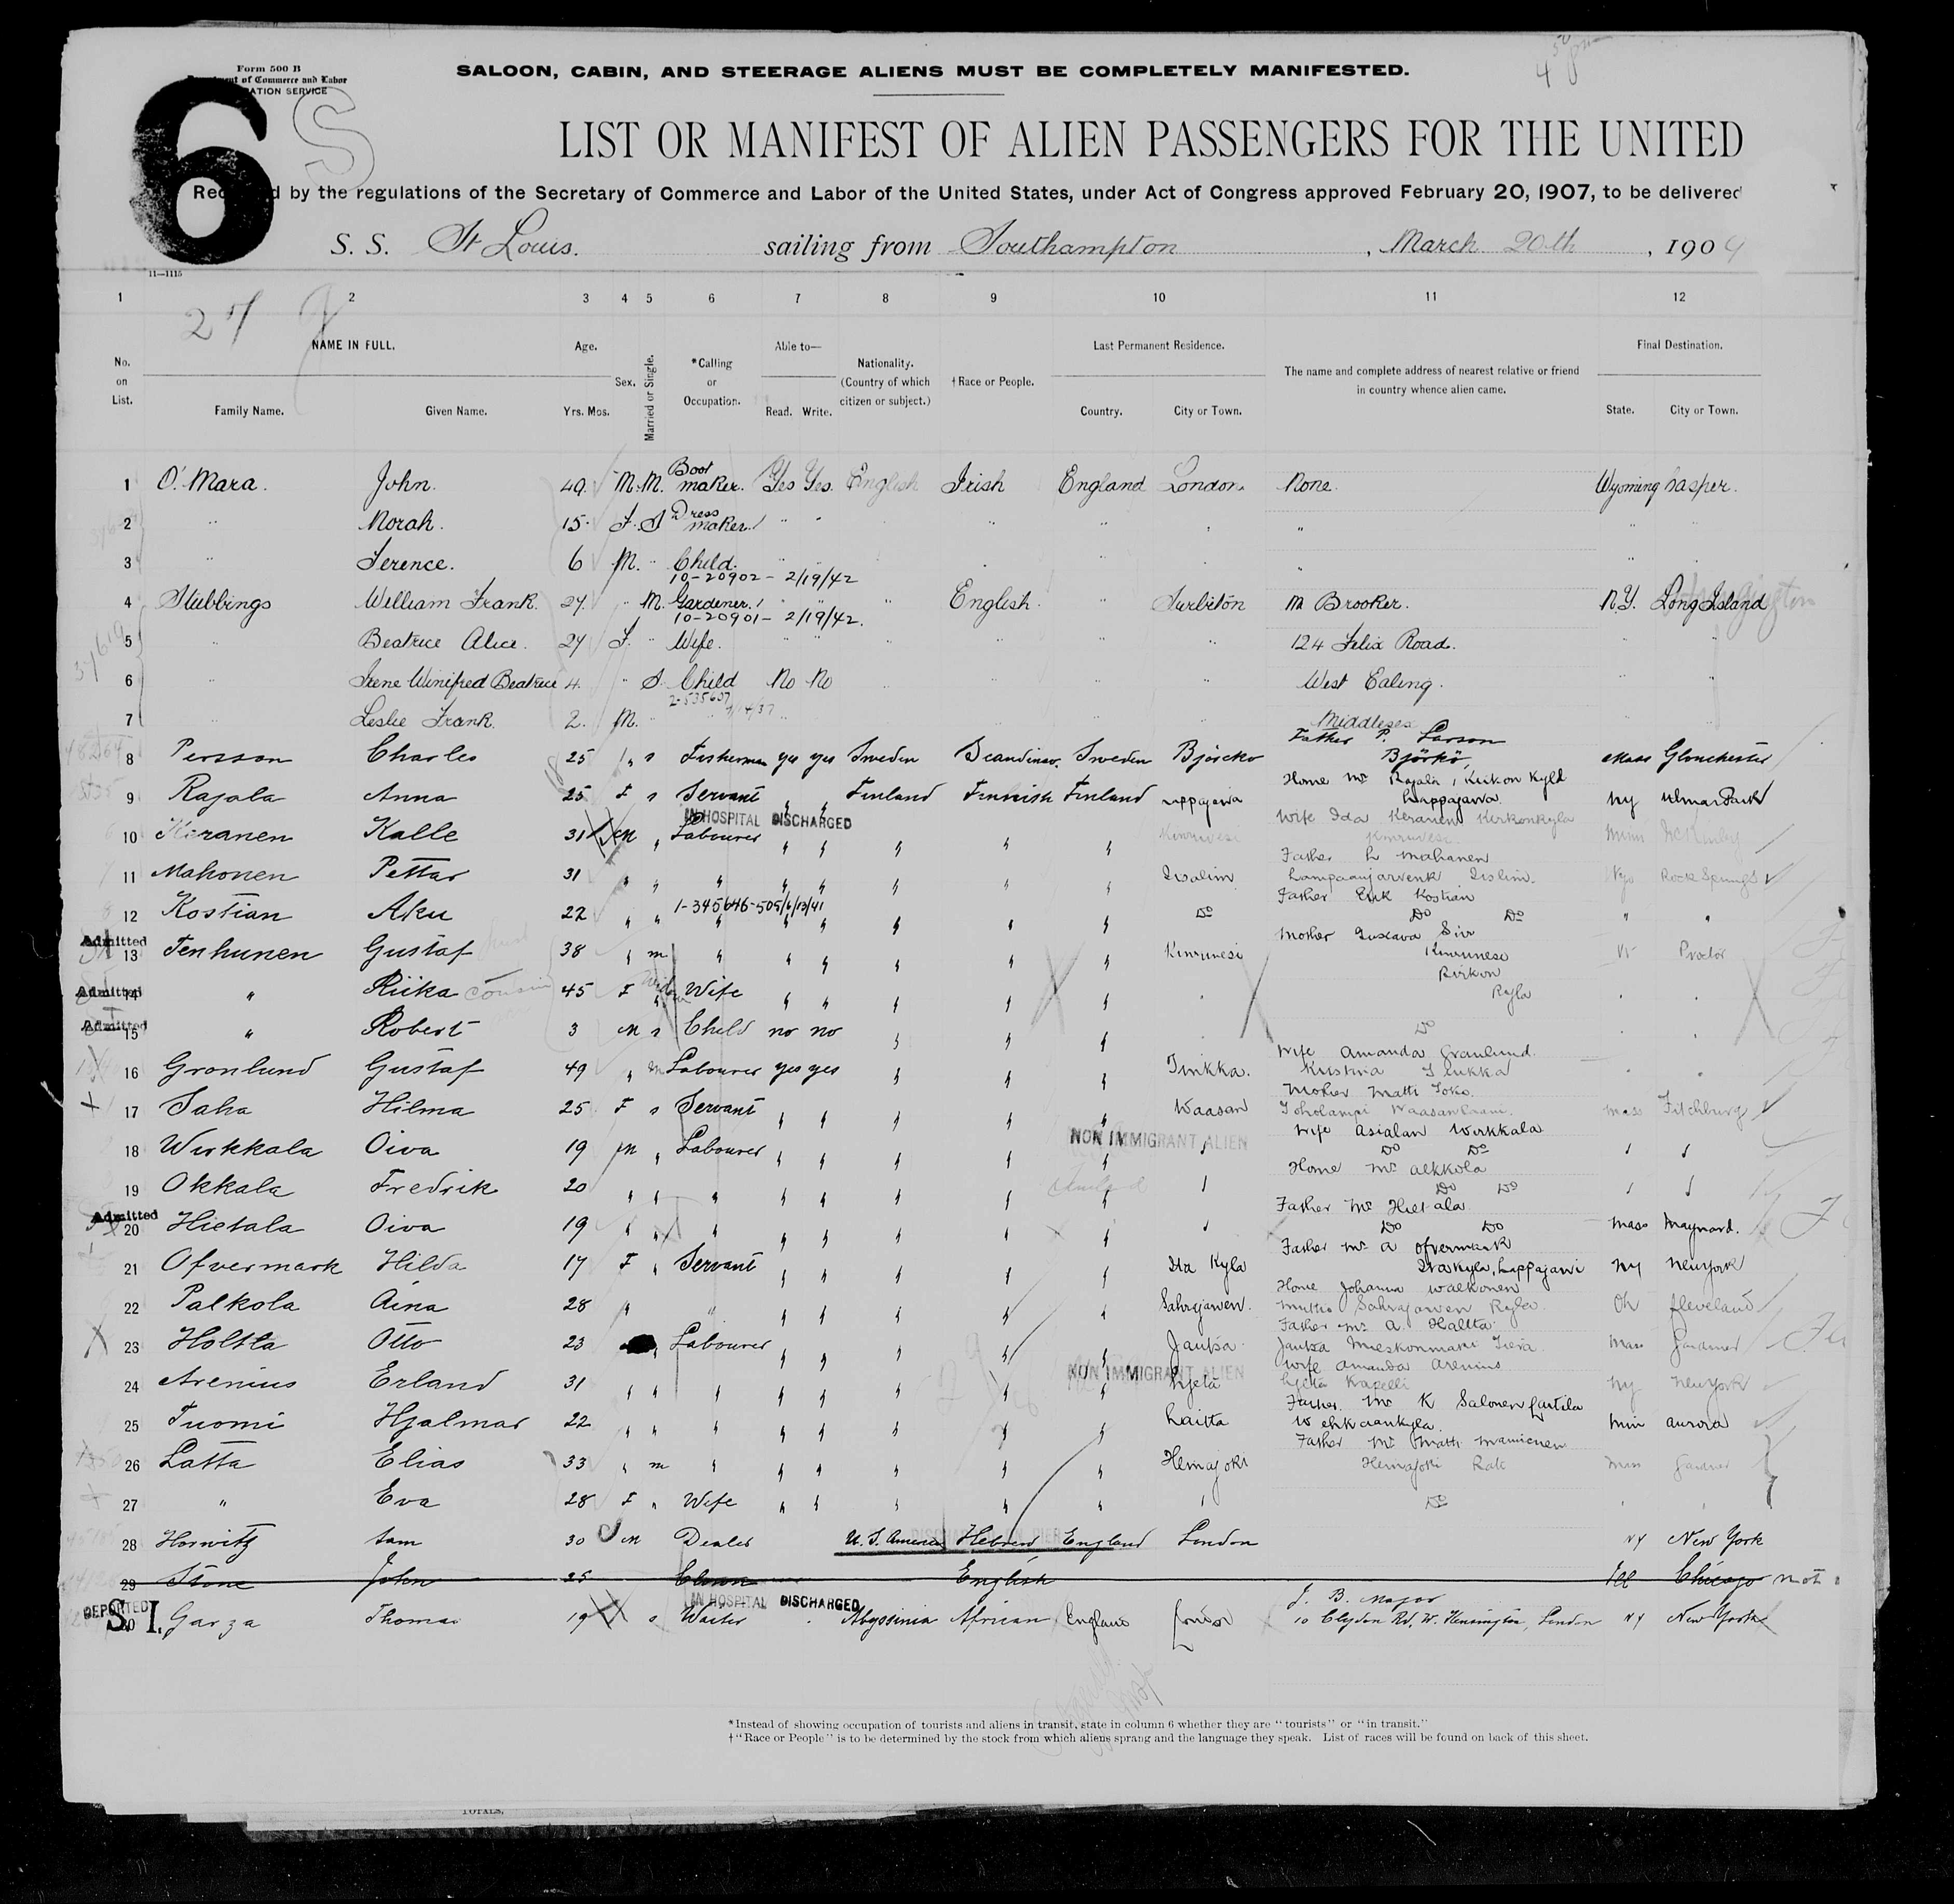 Form 500 B
of Commerce and Labor
SERVICE
6 S
SALOON, CABIN, AND STEERAGE ALIENS MUST BE COMPLETELY MANIFESTED.
LIST OR MANIFEST OF ALIEN PASSENGERS FOR THE UNITED
by the regulations of the Secretary of Commerce and Labor of the United States, under Act of Congress approved February 20, 1907, to be delivered
S. S. St Louis. sailing from Southampton, March 20th, 1909
11—1115
1 2 3 4 5 6 7 8 9 10 11 12
No. on List. NAME IN FULL. Family Name. Given Name. Age. Yrs. Mos. Sex. Married or Single. *Calling or Occupation. Able to— Read. Write. Nationality. (Country of which citizen or subject.) †Race or People. Last Permanent Residence. Country. City or Town. The name and complete address of nearest relative or friend in country whence alien came. Final Destination. State. City or Town.
1 O'Mara. John. 49 M. M. Boot maker. Yes Yes. English Irish England London. None. Wyoming Casper.
2 " Norah. 15 F. S Dress maker. " " " " " "
3 " Terence. 6 M. " Child. " " "
10-20902 - 2/19/42
4 Stubbings William Frank. 27 " M. Gardener. " " " English. " Surbiton M Brooker. N.Y. Long Island
10-20901 - 2/19/42.
5 " Beatrice Alice. 27 F. " Wife. " " " " " " 124 Felix Road. " "
6 " Irene Winifred Beatrice 4. " S. Child No No " " " " West Ealing. " "
7 " Leslie Frank. 2. M. " " " " " " " Middlesex " "
8 Persson Charles 25 " s Fisherman yes yes Sweden Scandinav. Sweden Björcko Father P. Larson Björkö, Mass Glouchester
9 Rajala Anna 25 F s Servant " " Finland Finnish Finland Lappajarvi Home Mr Rajala, Kirkon Kyld Lappajarva NY Ulmer Park
IN HOSPITAL DISCHARGED
10 Keranen Kalle 31 M " Labourer " " " " " Kiuruvesi Wife Ida Keranen Kirkonkyla Kiuruvesi Minn McKinley
11 Mahonen Pettar 31 " " " " " " " " Iisalim Father L Mahanen Iisalim. Wyo Rock Springs
1-345646-505/6/13/41
12 Kostian Aku 22 " " " " " " " " Do Father Erik Kostian Do Do " "
Admitted
13 Tenhunen Gustaf 38 " m " " " " " " Kiuruvesi Mother Gustava Siv Kiuruvesi Proctor
Admitted
14 " Riika cousin 45 F " Wife " " " " " Kirkon Kyla
Admitted
15 " Robert 3 M s Child no no " " " Do
16 Gronlund Gustaf 49 " m Labourer yes yes " " " Wife Amanda Gronlund.
17 Saha Hilma 25 F s Servant " " " " " Waasan Mother Matti Toko. Toholampi Waasanlaani. Mass Fitchburg
NON IMMIGRANT ALIEN
18 Wirkkala Oiva 19 M " Labourer " " " " " " Wife Asialan Wirkkala Do Do " "
19 Okkala Fredrik 20 " " " " " " " " " Home Mr Alkkola Do Do " "
Admitted
20 Hietala Oiva 19 " " " " " " " " " Father Mr Hietala Do Do Mass Maynard.
21 Ofvermark Hilda 17 F " Servant " " " " " Ita Kyla Father Mr A Ofvermark Itakyla, Lappajarvi NY New York
22 Palkola Aina 28 " " " " " " " Sahrajarven. Home Johanna Walkonen Sahrajarven Kyla. Oh Cleveland
23 Holtta Otto 23 " Labourer " " " " " Jamsa Father Mr A. Haltta Mass Gardner
NON IMMIGRANT ALIEN
24 Arenius Erland 31 " " " " " " " " Wife Amanda Arenius NY New York
25 Tuomi Hjalmar 22 " " " " " " " " Laitta Father Mr K Salonen Min Aurora
26 Latta Elias 33 " m " " " " " " Hemajoki Father Mr Matti Mamienen Hemajoki Mass Gardner
27 " Eva 28 F " Wife " " " " " " Do " "
28 Horwitz Sam 30 M Dealer U.S. America Hebrew England London NY New York
29 Stone John 25 Clown English Ill Chicago not
IN HOSPITAL DISCHARGED
DEPORTED S. I.
30 Garza Thomas 19 s Waiter " Abyssinia African England London J. B. Major 10 Clydon Rd, W. Kensington, London NY New York
*Instead of showing occupation of tourists and aliens in transit, state in column 6 whether they are "tourists" or "in transit."
†"Race or People" is to be determined by the stock from which aliens sprang and the language they speak. List of races will be found on back of this sheet.
TOTALS,